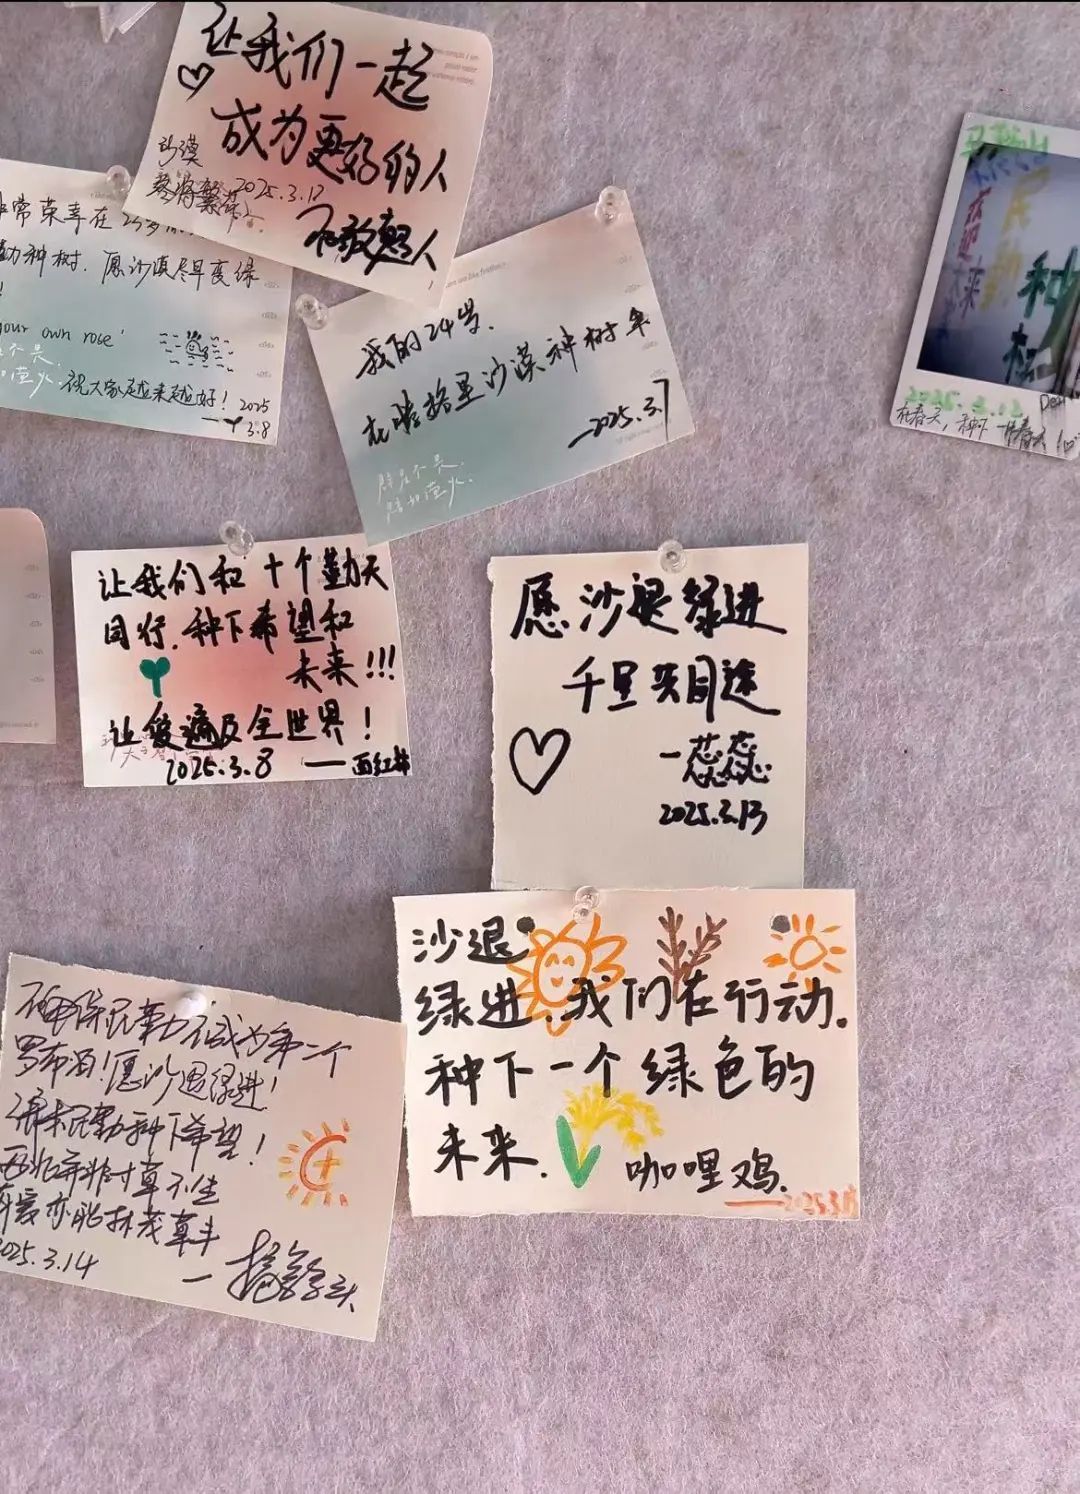 让我们一起
成为更好的人
沙漠
终将繁花
2025.3.12
不敢惹人
常荣幸在
种树. 愿沙漠尽早变绿
your own rose'
祝大家越来越好!
2025
3.8
我的24岁.
在腾格里沙漠种树
—2025.3.7
2025.3.12
在春天, 种下一片春天
让我们和十个勤天
同行. 种下希望和
未来!!!
让爱遍及全世界!
2025.3.8 ——西红柿
愿沙退绿进
千里共同途
—蕊蕊
2025.3.13
沙退
绿进, 我们在行动.
种下一个绿色的
未来.
咖哩鸡.
民勤不成为第二个
罗布泊! 愿沙退绿进!
民勤种下希望!
草不生
林茂草丰
2025.3.14